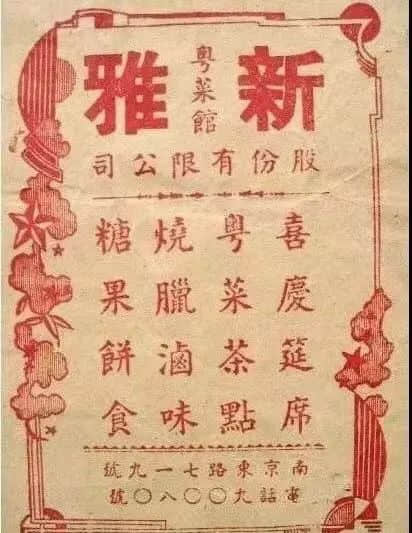 新雅
粤菜館
股份有限公司
喜慶筵席
粤菜茶點
燒臘滷味
糖果餅食
南京東路七一九號
電話九〇〇八〇號